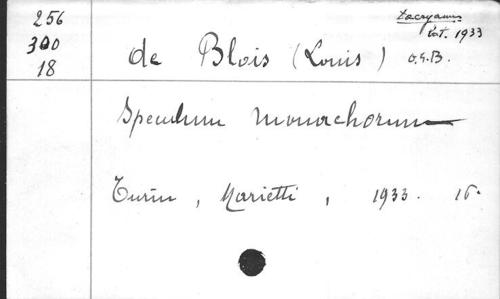 256
300
18
Oct. 1933
de Blois (Louis) O.S.B.
Speculum Monachorum
Turin, Marietti, 1933. 16°